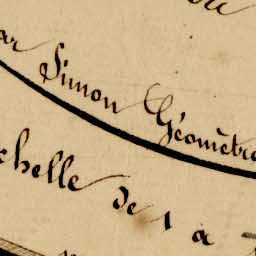 ar Simon Géomètre
chelle de 1 à